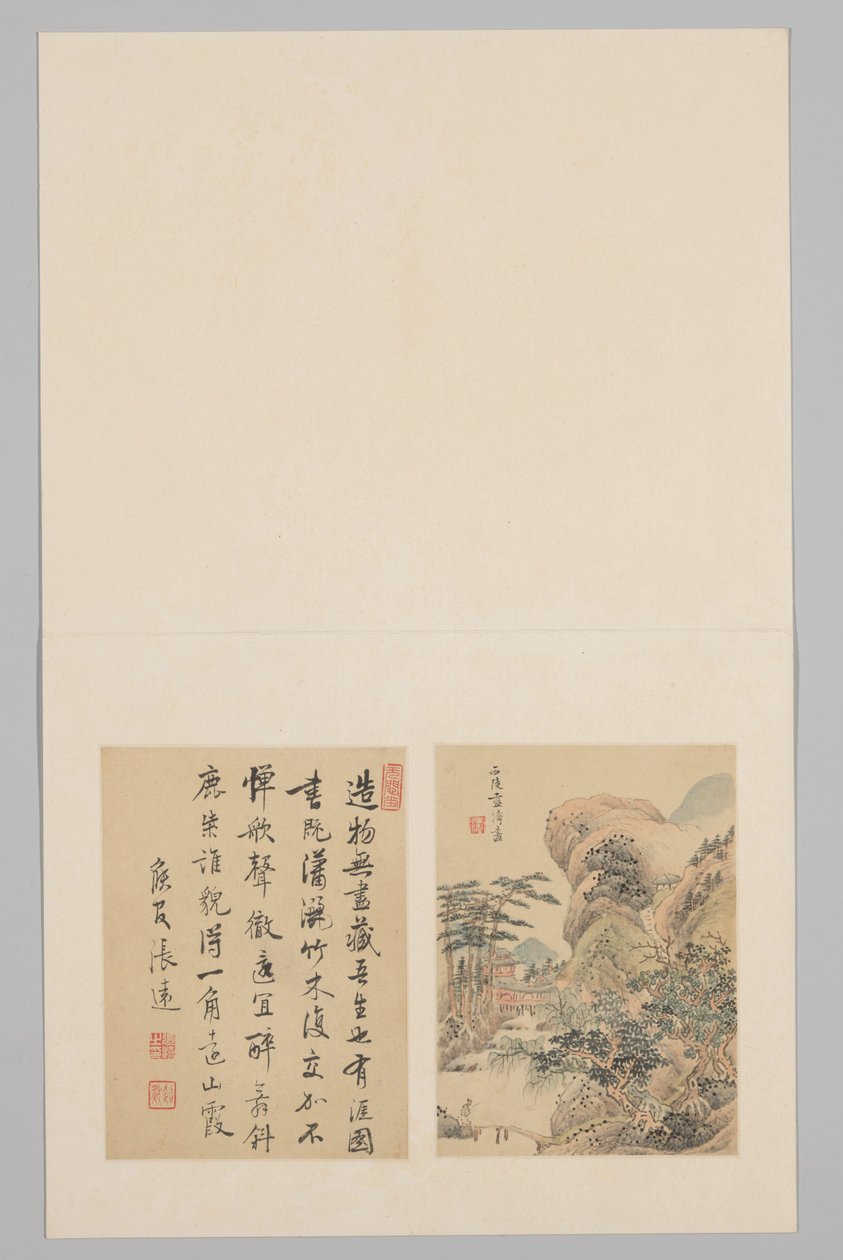 西陵藍濤畫
造物無盡藏吾生也有涯圖
書既瀟灑竹木復交加不
憚歌聲徹還宜醉舞斜
鹿柴誰貌得一角遠山霞
侯官張遠